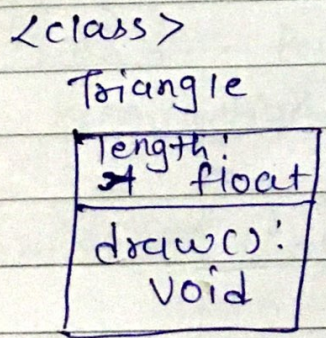 <class>
Triangle
length:
float
draw():
void